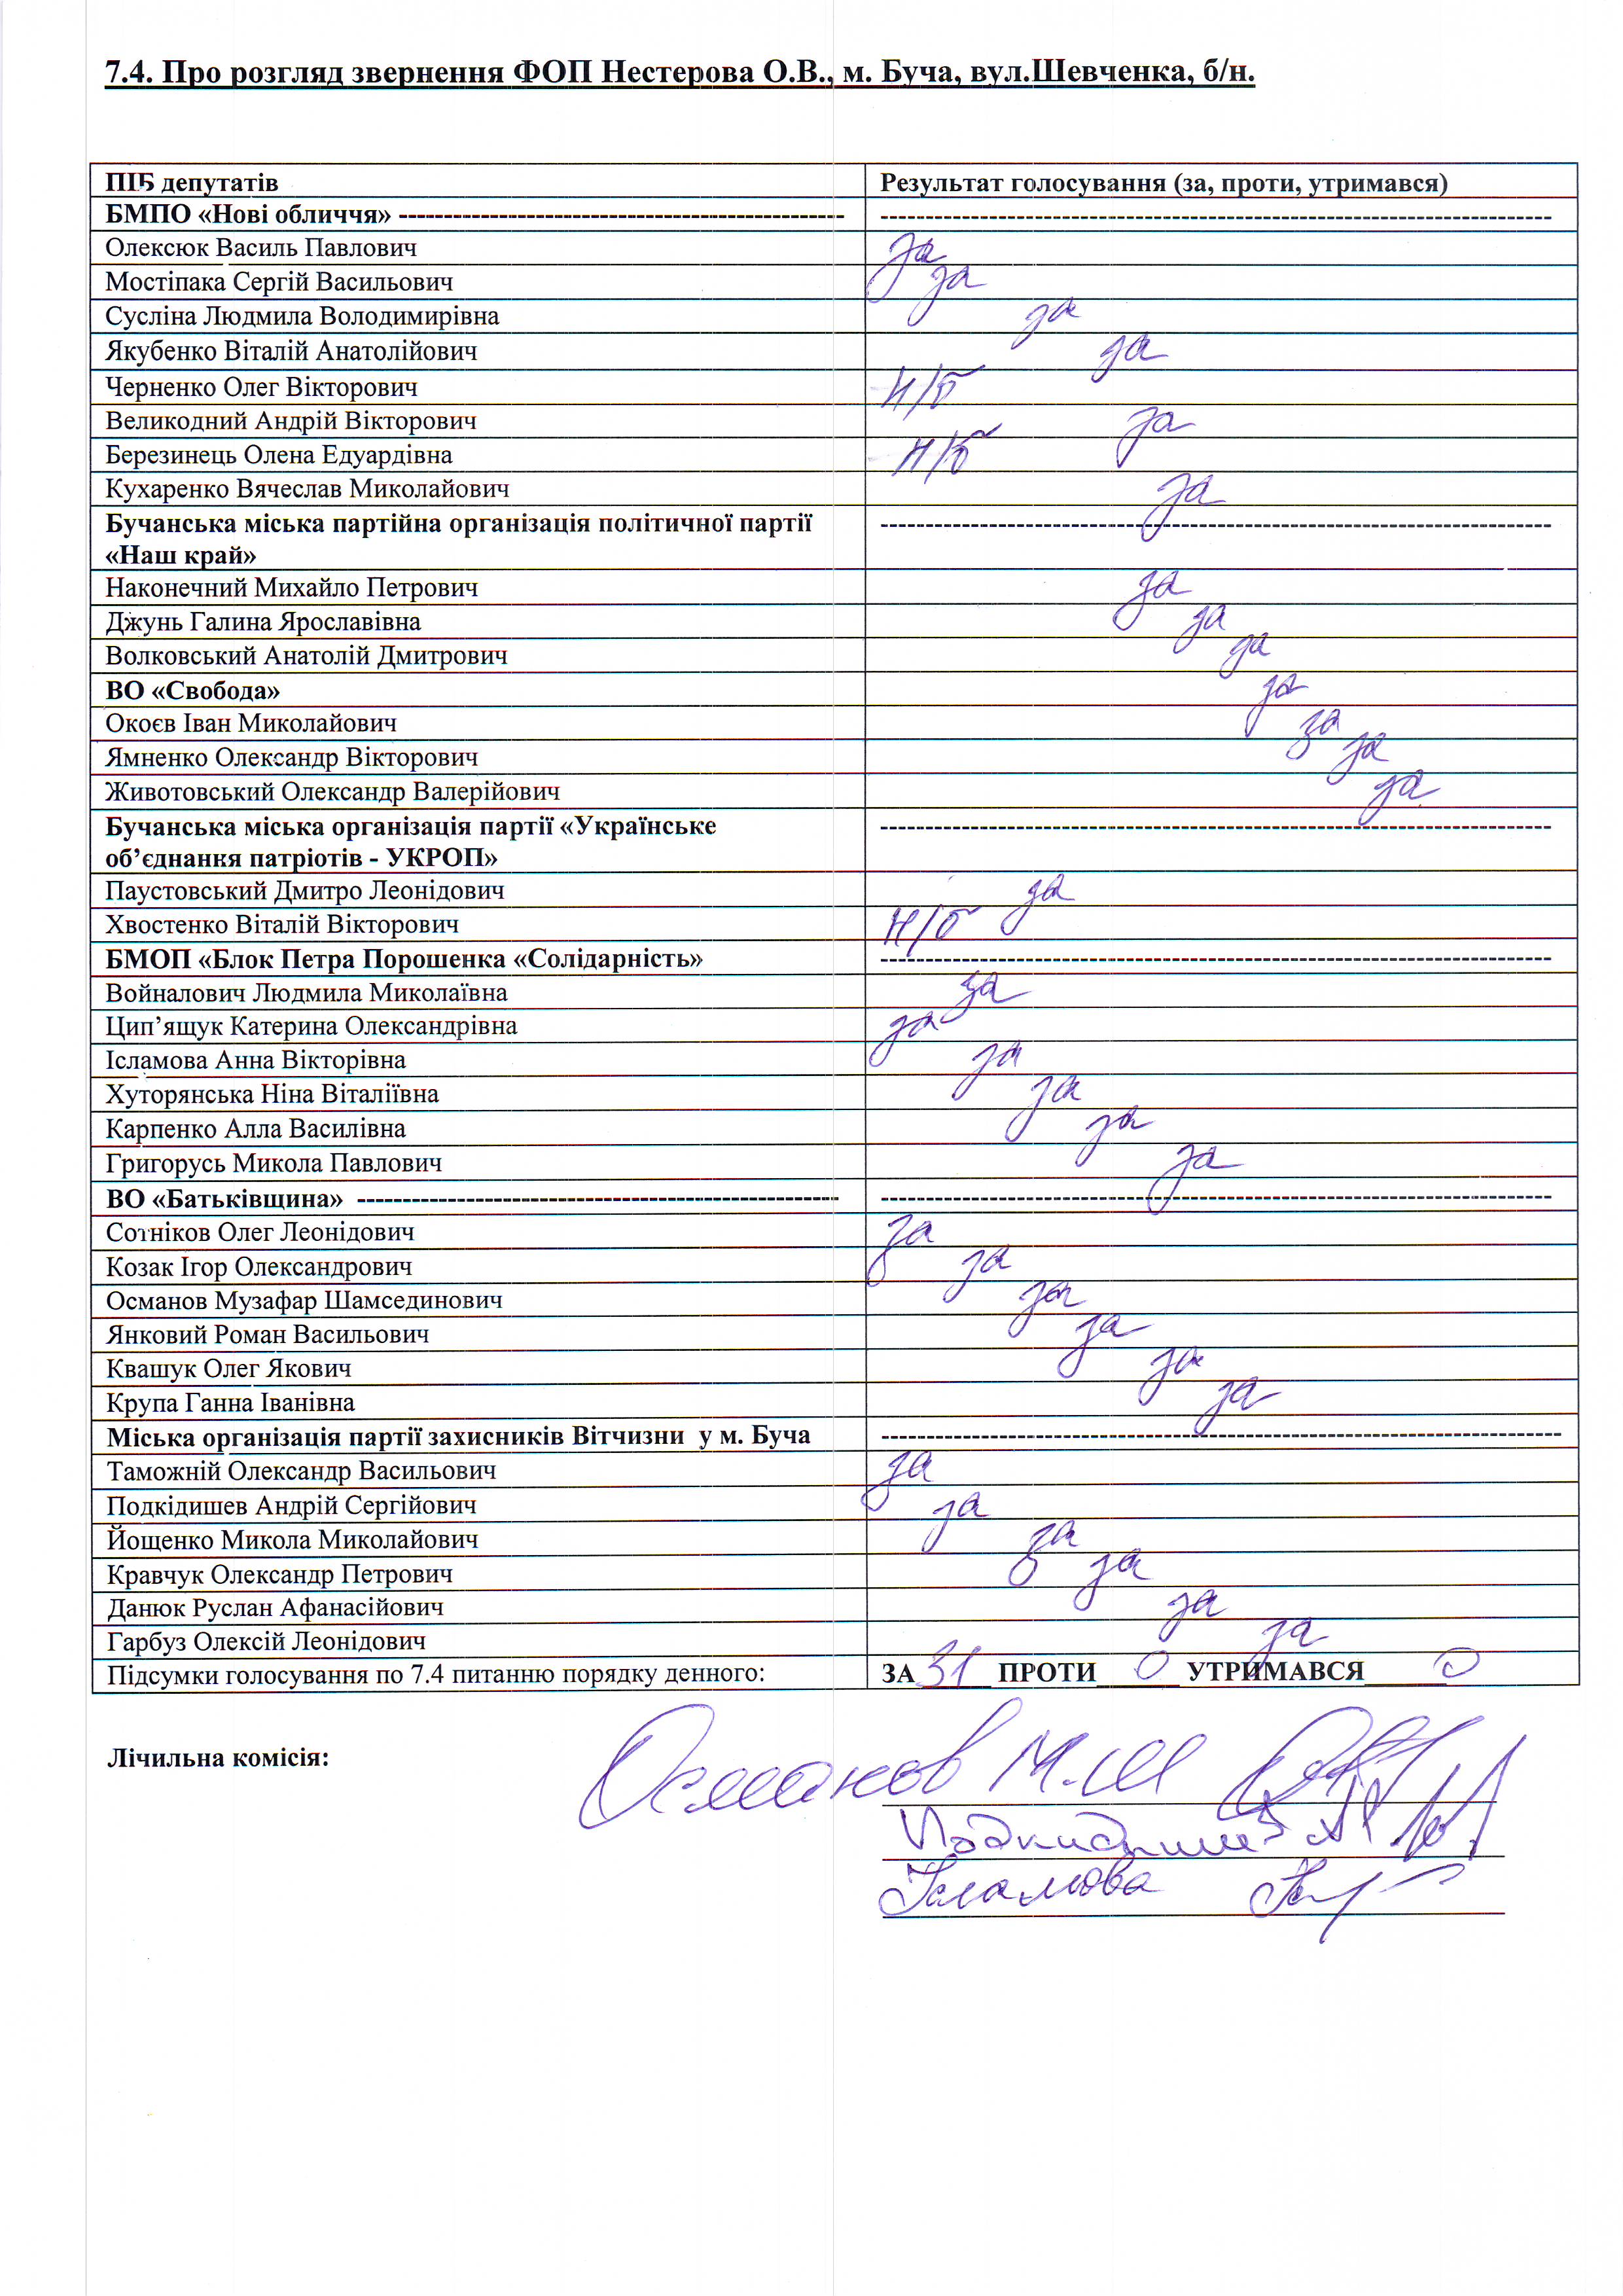 7.4. Про розгляд звернення ФОП Нестерова О.В., м. Буча, вул.Шевченка, б/н.
ПІБ депутатів Результат голосування (за, проти, утримався)
БМПО «Нові обличчя» ------------------------------------------------- --------------------------------------------------------------------------
Олексюк Василь Павлович за
Мостіпака Сергій Васильович за
Сусліна Людмила Володимирівна за
Якубенко Віталій Анатолійович за
Черненко Олег Вікторович н/б
Великодний Андрій Вікторович за
Березинець Олена Едуардівна н/б
Кухаренко Вячеслав Миколайович за
Бучанська міська партійна організація політичної партії --------------------------------------------------------------------------
«Наш край»
Наконечний Михайло Петрович за
Джунь Галина Ярославівна за
Волковський Анатолій Дмитрович за
ВО «Свобода» за
Окоєв Іван Миколайович за
Ямненко Олександр Вікторович за
Животовський Олександр Валерійович за
Бучанська міська організація партії «Українське --------------------------------------------------------------------------
об’єднання патріотів - УКРОП»
Паустовський Дмитро Леонідович за
Хвостенко Віталій Вікторович н/б
БМОП «Блок Петра Порошенка «Солідарність» --------------------------------------------------------------------------
Войналович Людмила Миколаївна за
Цип’ящук Катерина Олександрівна за
Ісламова Анна Вікторівна за
Хуторянська Ніна Віталіївна за
Карпенко Алла Василівна за
Григорусь Микола Павлович за
ВО «Батьківщина» ----------------------------------------------------- --------------------------------------------------------------------------
Сотніков Олег Леонідович за
Козак Ігор Олександрович за
Османов Музафар Шамсединович за
Янковий Роман Васильович за
Квашук Олег Якович за
Крупа Ганна Іванівна за
Міська організація партії захисників Вітчизни у м. Буча ---------------------------------------------------------------------------
Таможній Олександр Васильович за
Подкідишев Андрій Сергійович за
Йощенко Микола Миколайович за
Кравчук Олександр Петрович за
Данюк Руслан Афанасійович за
Гарбуз Олексій Леонідович за
Підсумки голосування по 7.4 питанню порядку денного: ЗА 31 ПРОТИ 0 УТРИМАВСЯ 0
Лічильна комісія: Османов М.Ш
Ісламова